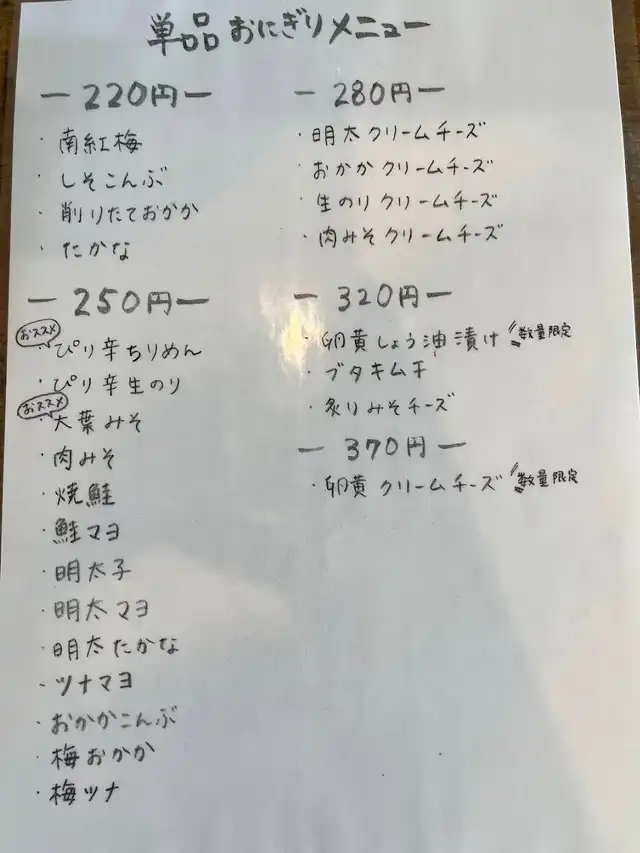 単品 おにぎりメニュー
ー 220円 ー
・南紅梅
・しそこんぶ
・削りたておかか
・たかな
ー 250円 ー
おススメ
・ぴり辛ちりめん
・ぴり辛生のり
おススメ
・大葉みそ
・肉みそ
・焼鮭
・鮭マヨ
・明太子
・明太マヨ
・明太たかな
・ツナマヨ
・おかかこんぶ
・梅おかか
・梅ツナ
ー 280円 ー
・明太クリームチーズ
・おかかクリームチーズ
・生のりクリームチーズ
・肉みそクリームチーズ
ー 320円 ー
・卵黄しょう油漬け 数量限定
・ブタキムチ
・炙りみそチーズ
ー 370円 ー
・卵黄クリームチーズ 数量限定